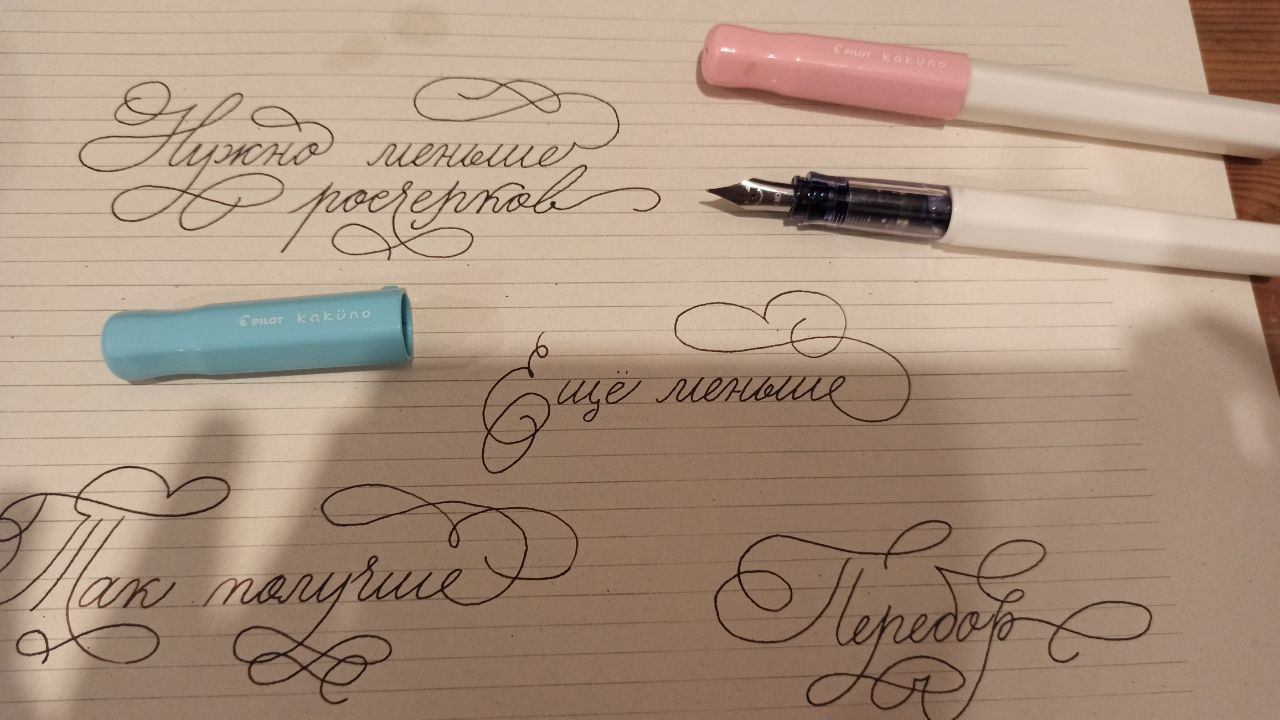 PILOT kaküno
Нужно меньше
росчерков
PILOT kaküno
Ещё меньше
Так получше
Перебор